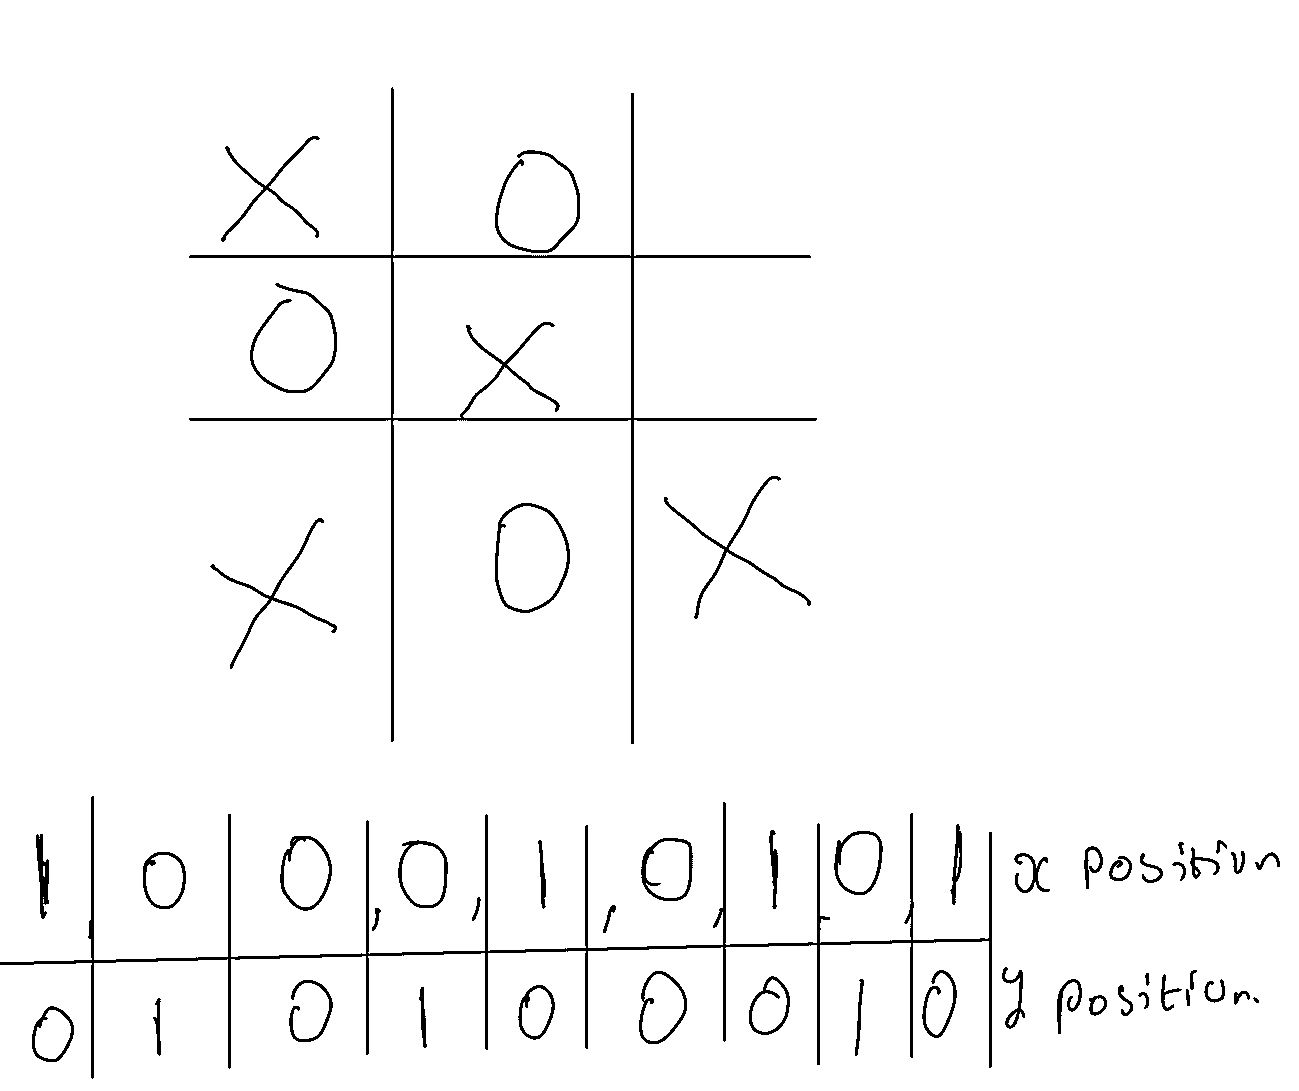 X O
O X
X O X
1, 0 0, 0, 1, 0, 1, 0, 1 x position
0 1 0 1 0 0 0 1 0 y position.